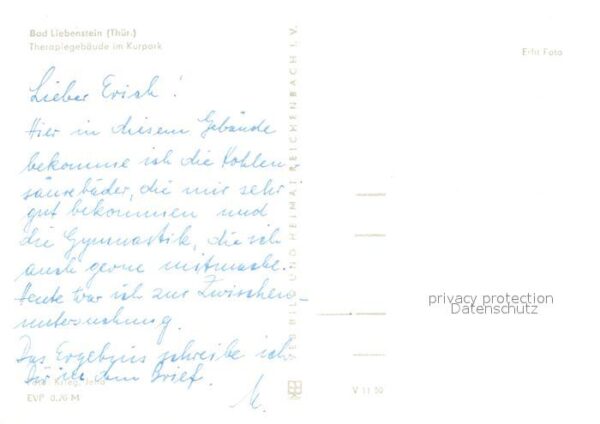 Bad Liebenstein (Thür.)
Therapiegebäude im Kurpark
Echt Foto
Lieber Erich!
Hier in diesem Gebäude
bekomme ich die Kohlen-
säurebäder, die mir sehr
gut bekommen und
die Gymnastik, die ich
auch gerne mitmache.
Heute war ich zur Zwischen-
untersuchung.
Das Ergebnis schreibe ich
Dir in dem Brief.
M.
Foto: Krieg, Jena
EVP 0,20 M
VERLAG BILD UND HEIMAT REICHENBACH I. V.
V 11 50
privacy protection
Datenschutz